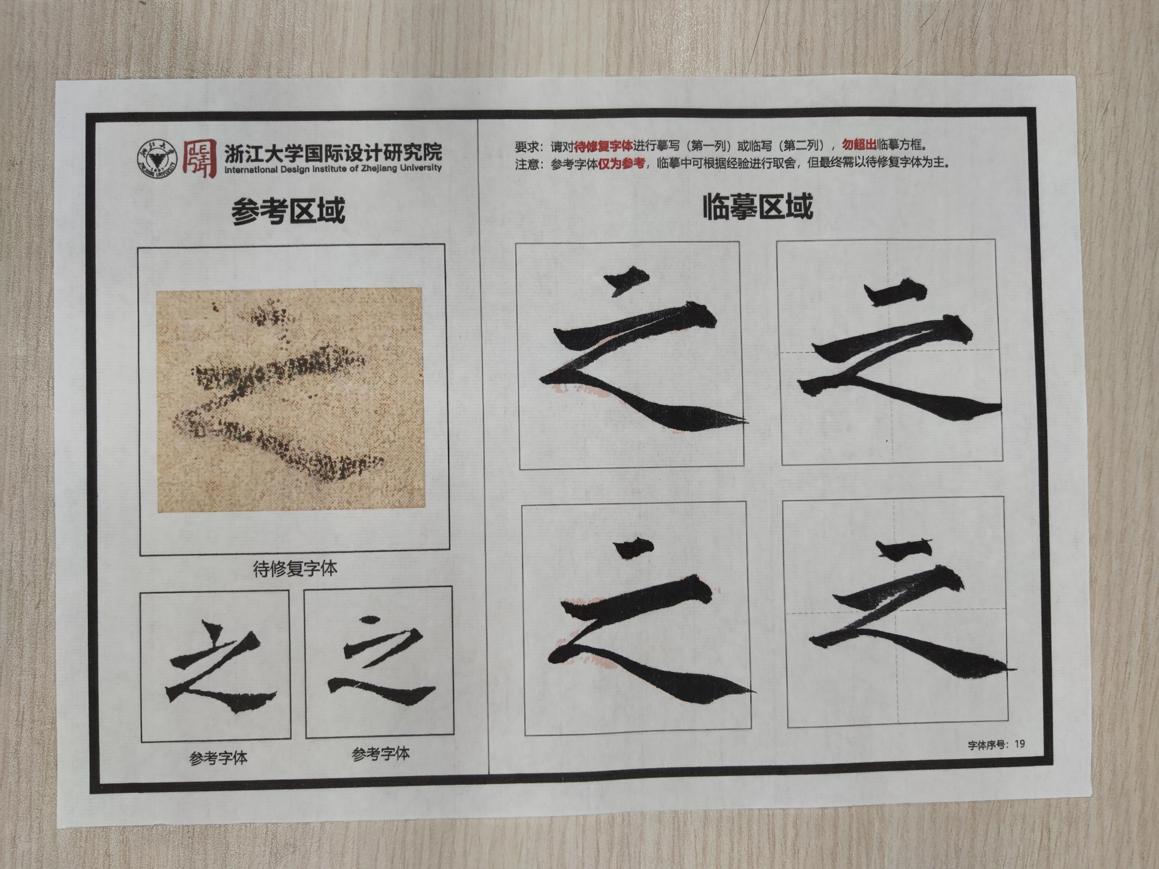 浙江大学国际设计研究院
International Design Institute of Zhejiang University
参考区域
之
待修复字体
之
之
参考字体
参考字体
要求：请对待修复字体进行摹写（第一列）或临写（第二列），勿超出临摹方框。
注意：参考字体仅为参考，临摹中可根据经验进行取舍，但最终需以待修复字体为主。
临摹区域
之
之
之
之
字体序号：19